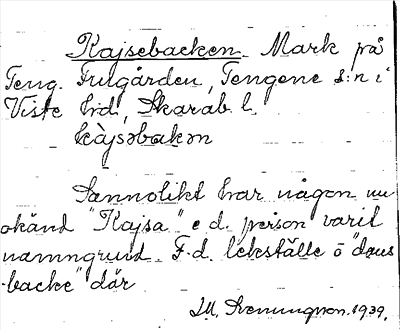 Kajsebacken. Mark på
Teng. Frugården, Tengene s:n i
Viste hrd, Skarab. l.
kàjsəbakən
Sannolikt har någon nu
okänd "Kajsa" e d. person varit
namngrund. F.d. lekställe o "dans
-backe" där
Svenungson. 1939.